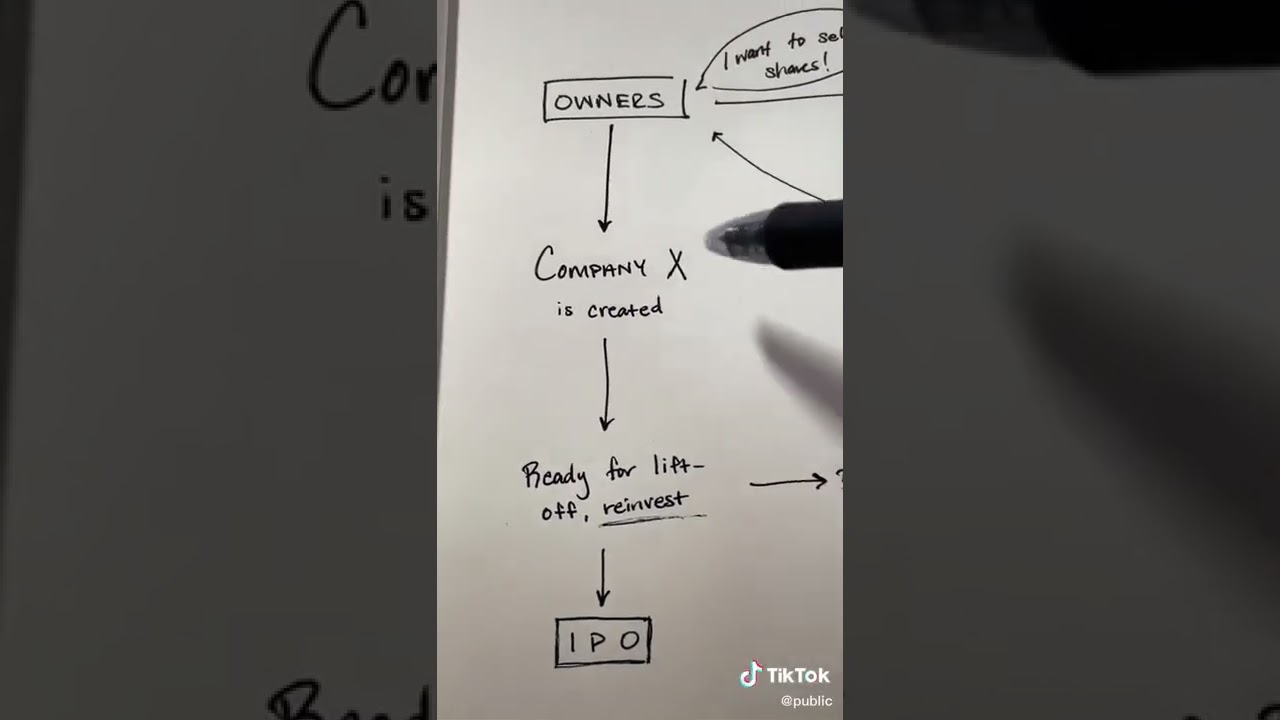 I want to sel
shares!
OWNERS
COMPANY X
is created
Ready for lift-
off, reinvest
IPO
TikTok
@public
Cor
is
Read